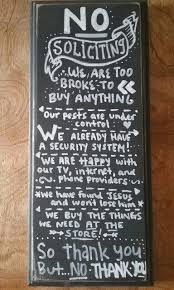 NO
SOLICITING
...WE ARE TOO
BROKE TO
BUY ANYTHING
Our pests are under
control
WE ALREADY HAVE
A SECURITY SYSTEM!
WE ARE HAPPY with
our TV, internet, and
phone providers
We have found Jesus
and wont lose him
WE BUY THE THINGS
WE NEED AT THE
STORE!
So thank you
But...NO THANK YOU